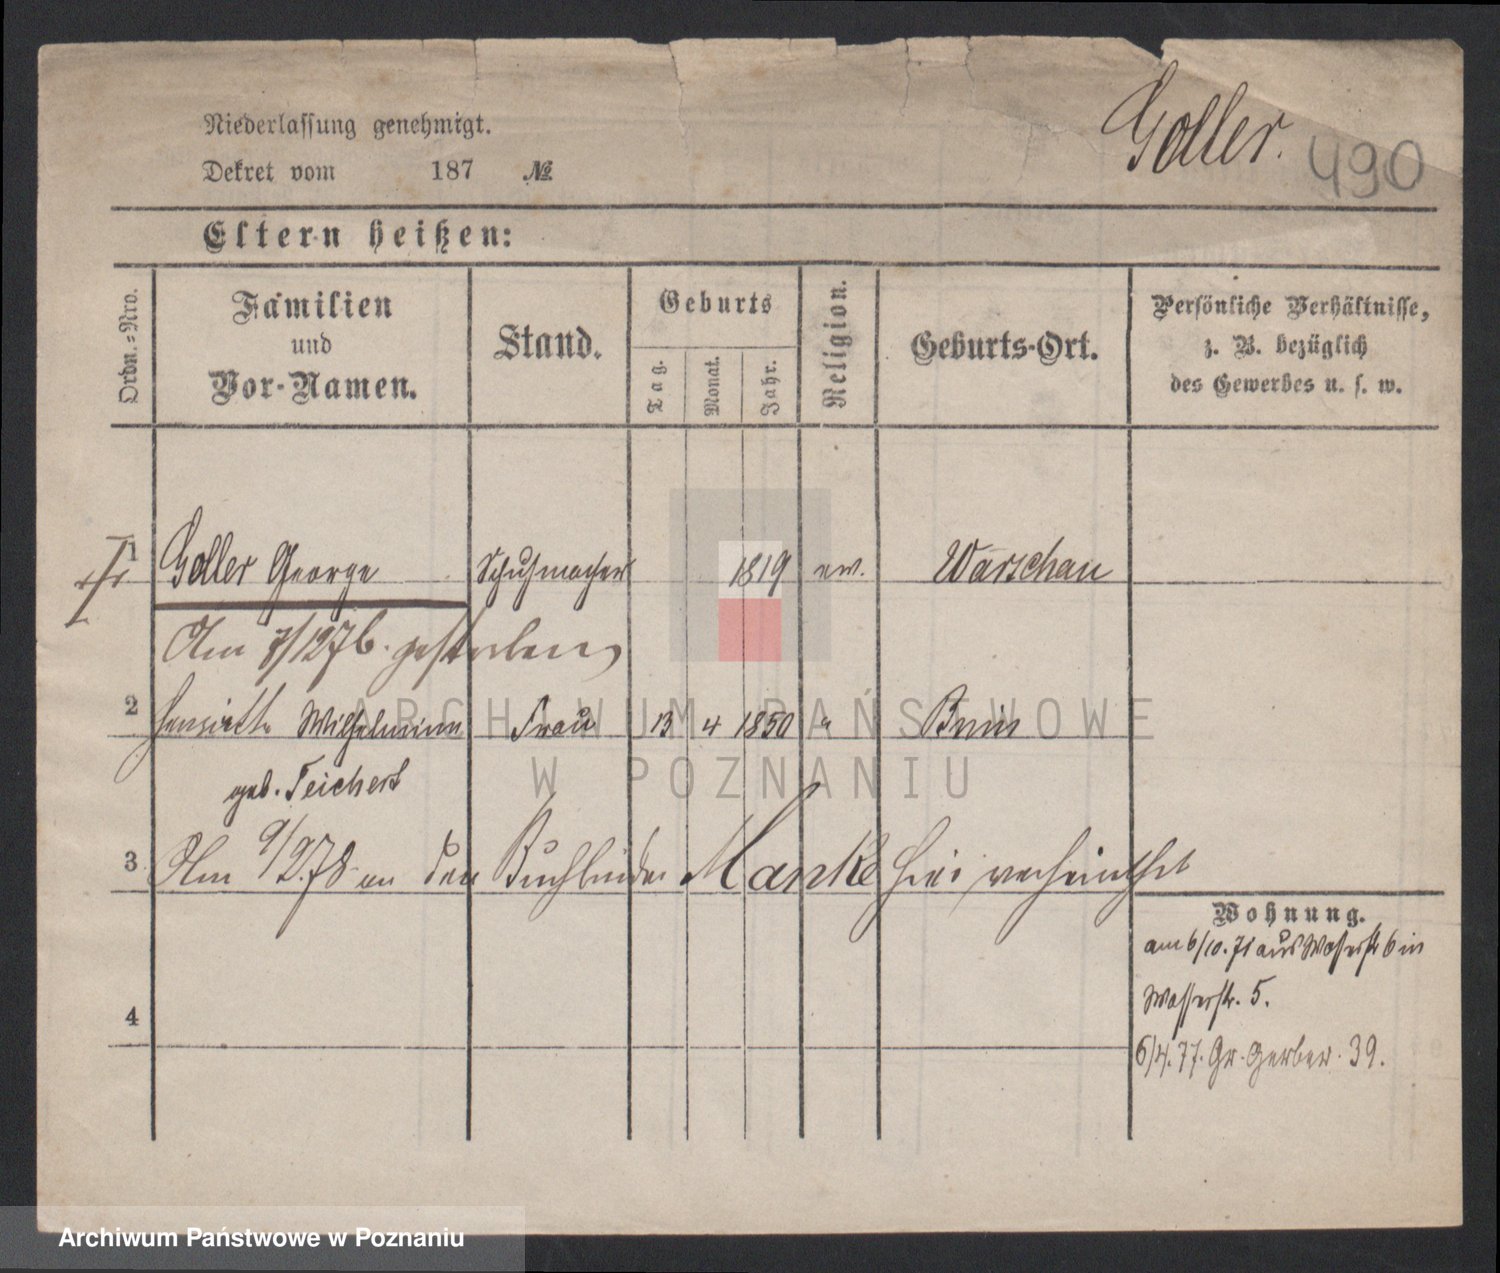 Niederlassung genehmigt.
Goller.
490
Dekret vom 187 №
Eltern heißen:
Ordn.-Nro.
Familien
und
Vor-Namen.
Stand.
Geburts
Tag.
Monat.
Jahr.
Religion.
Geburts-Ort.
Persönliche Verhältnisse,
z. B. bezüglich
des Gewerbes u. s. w.
1 Goller George Schuhmacher 1819 ev. Warschau
Am 7/12 76. gestorben
2 Henriette Wilhelmine Frau 13 4 1850 " Bnin
geb. Teichert
3 Am 9/2.78 an den Buchbinder Manke hier verheirathet
Wohnung.
am 6/10.71 aus Wasserstr 6 in
Wasserstr. 5.
4
6/4.77. Gr. Gerber. 39.
ARCHIWUM PAŃSTWOWE
W POZNANIU
Archiwum Państwowe w Poznaniu